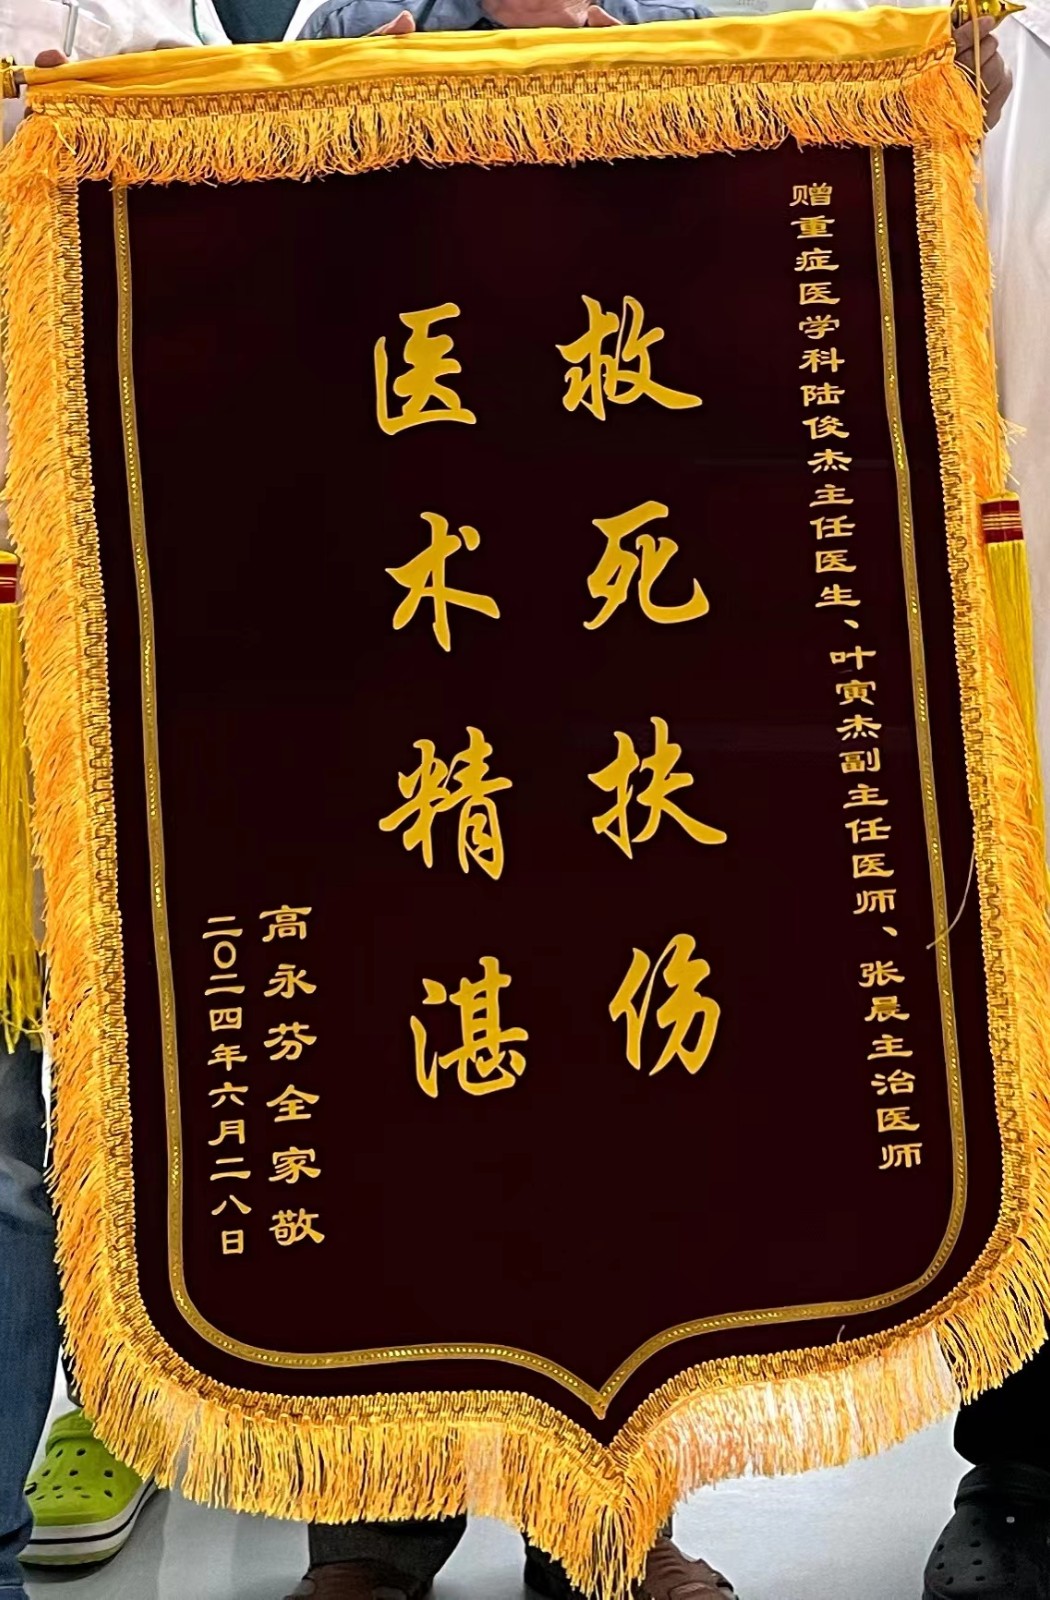 赠重症医学科陆俊杰主任医生、叶寅杰副主任医师、张晨主治医师
救死扶伤
医术精湛
高永芬全家敬
二〇二四年六月二八日